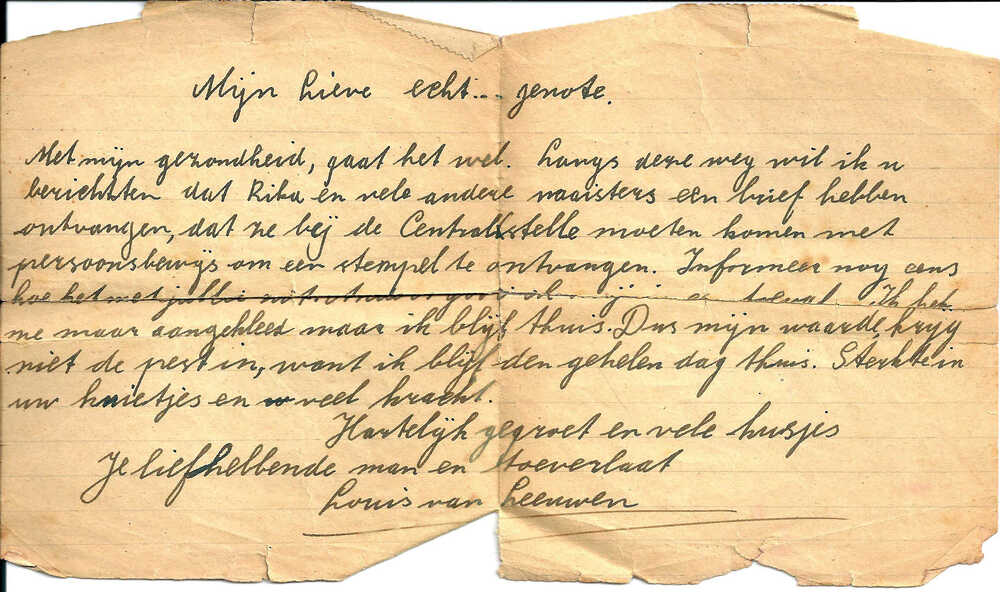 Mijn Lieve echt... genote.
Met mijn gezondheid, gaat het wel. Langs deze weg wil ik u
berichtten dat Rika en vele andere naaisters een brief hebben
ontvangen, dat ze bij de Centralstelle moeten komen met
persoonsbewijs om een stempel te ontvangen. Informeer nog eens
hoe het met jullie Ik heb
me maar aangekleed maar ik blijf thuis. Dus mijn waarde, kryg
niet de pest in, want ik blijf den gehelen dag thuis. Sterkte in
uw knietjes en veel kracht.
Hartelijk gegroet en vele kusjes
Je liefhebbende man en toeverlaat
Louis van Leeuwen